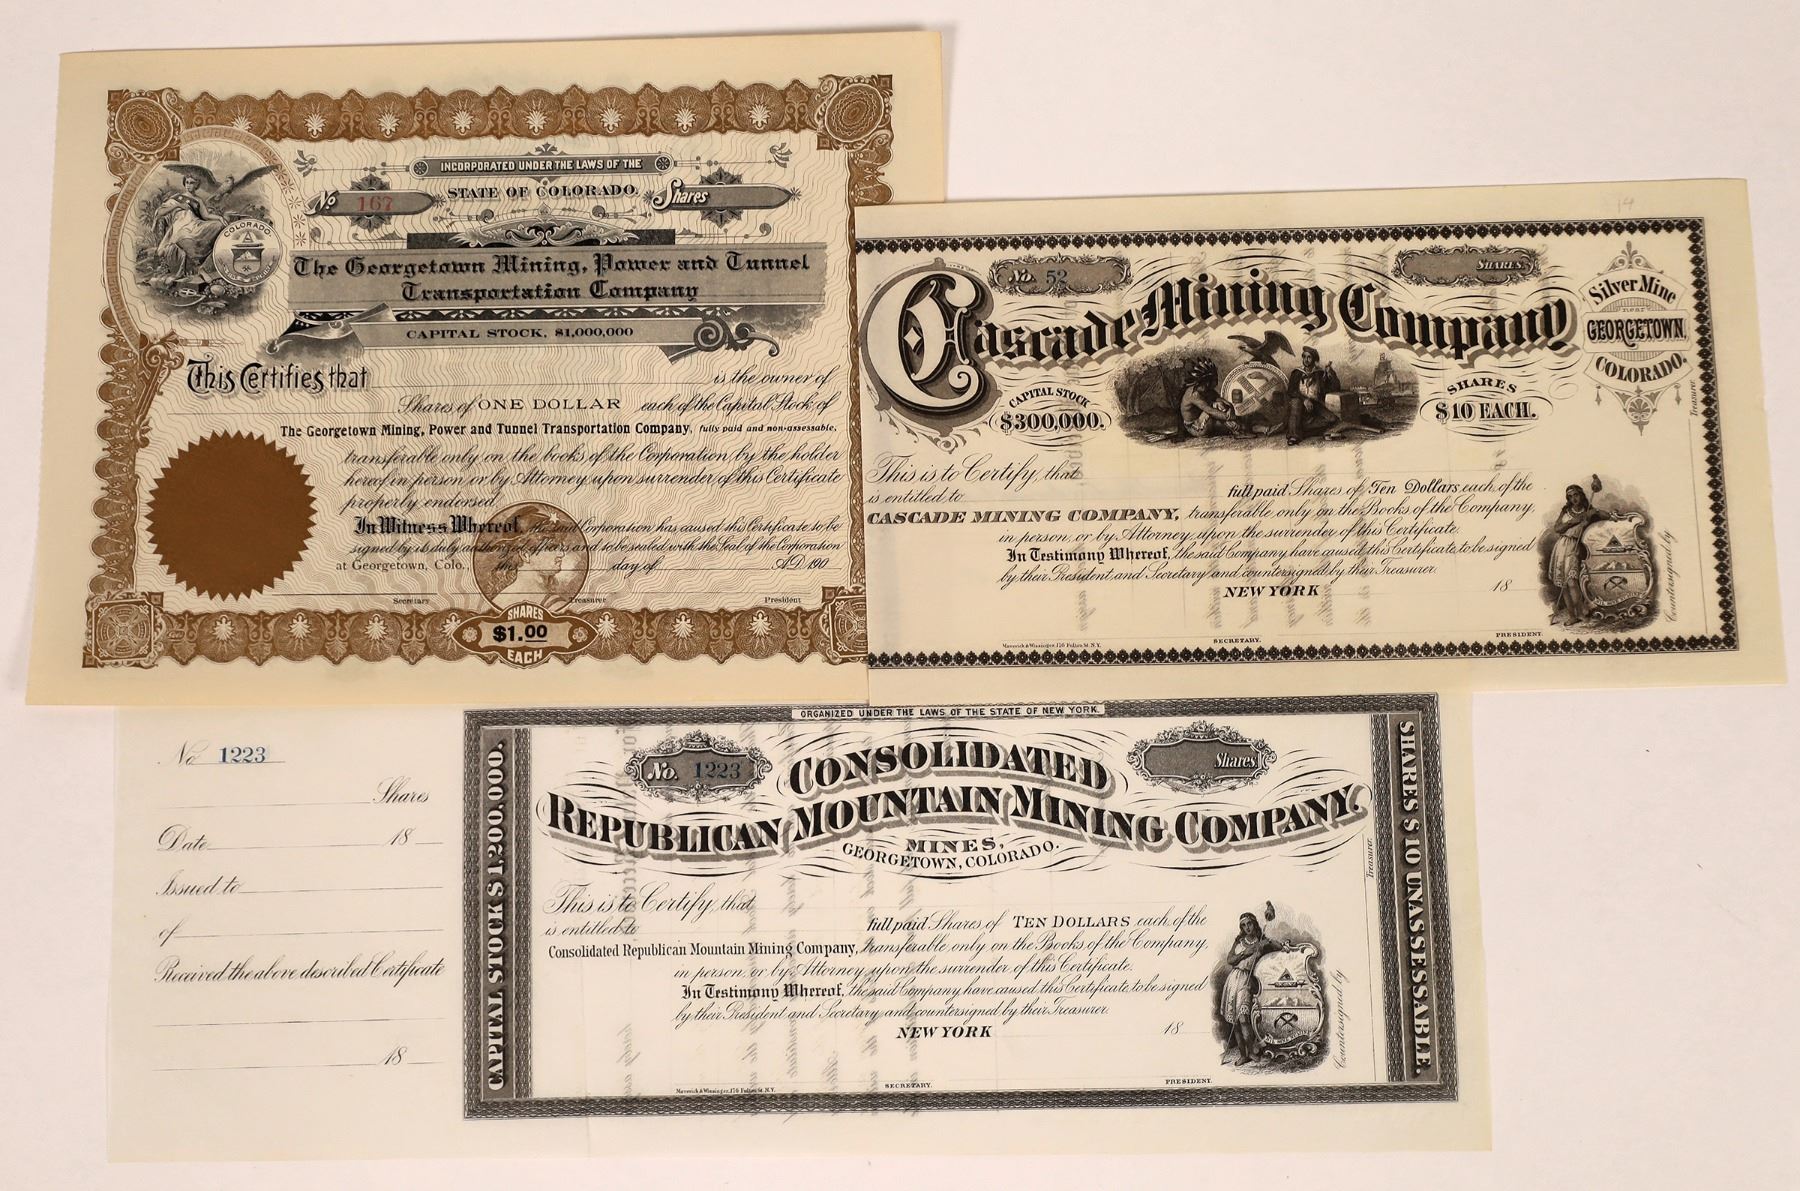 INCORPORATED UNDER THE LAWS OF THE
STATE OF COLORADO.
No 167
Shares
COLORADO
The Georgetown Mining, Power and Tunnel
Transportation Company
CAPITAL STOCK, $1,000,000
This Certifies that is the owner of
Shares of ONE DOLLAR each of the Capital Stock of
The Georgetown Mining, Power and Tunnel Transportation Company, fully paid and non-assessable,
transferable only on the books of the Corporation by the holder
hereof in person or by Attorney upon surrender of this Certificate
properly endorsed
In Witness Whereof, the said Corporation has caused this Certificate to be
signed by its duly authorized officers and to be sealed with the Seal of the Corporation
at Georgetown, Colo., this day of A.D. 190
Secretary Treasurer President
SHARES
$1.00
EACH
14
No. 52
SHARES.
Cascade Mining Company
Silver Mine
near
GEORGETOWN,
COLORADO.
CAPITAL STOCK
$300,000.
SHARES
$10 EACH.
Treasurer.
This is to Certify, that
is entitled to full paid Shares of Ten Dollars each, of the
CASCADE MINING COMPANY, transferable only on the Books of the Company,
in person, or by Attorney, upon the surrender of this Certificate.
In Testimony Whereof, the said Company have caused this Certificate to be signed
by their President and Secretary and countersigned by their Treasurer.
NEW YORK 18
Countersigned by
SECRETARY. PRESIDENT.
Maverick & Wissinger, 176 Fulton St. N.Y.
No 1223
Shares
Date 18
Issued to
of
Received the above described Certificate
18
ORGANIZED UNDER THE LAWS OF THE STATE OF NEW YORK.
CAPITAL STOCK $1,200,000.
No. 1223
Shares.
CONSOLIDATED
REPUBLICAN MOUNTAIN MINING COMPANY.
MINES,
GEORGETOWN, COLORADO.
Treasurer.
SHARES $10 UNASSESSABLE.
This is to Certify, that
is entitled to full paid Shares of TEN DOLLARS each, of the
Consolidated Republican Mountain Mining Company, transferable only on the Books of the Company,
in person, or by Attorney, upon the surrender of this Certificate.
In Testimony Whereof, the said Company have caused this Certificate to be signed
by their President and Secretary and countersigned by their Treasurer.
NEW YORK 18
Countersigned by
SECRETARY. PRESIDENT.
Maverick & Wissinger, 176 Fulton St. N.Y.